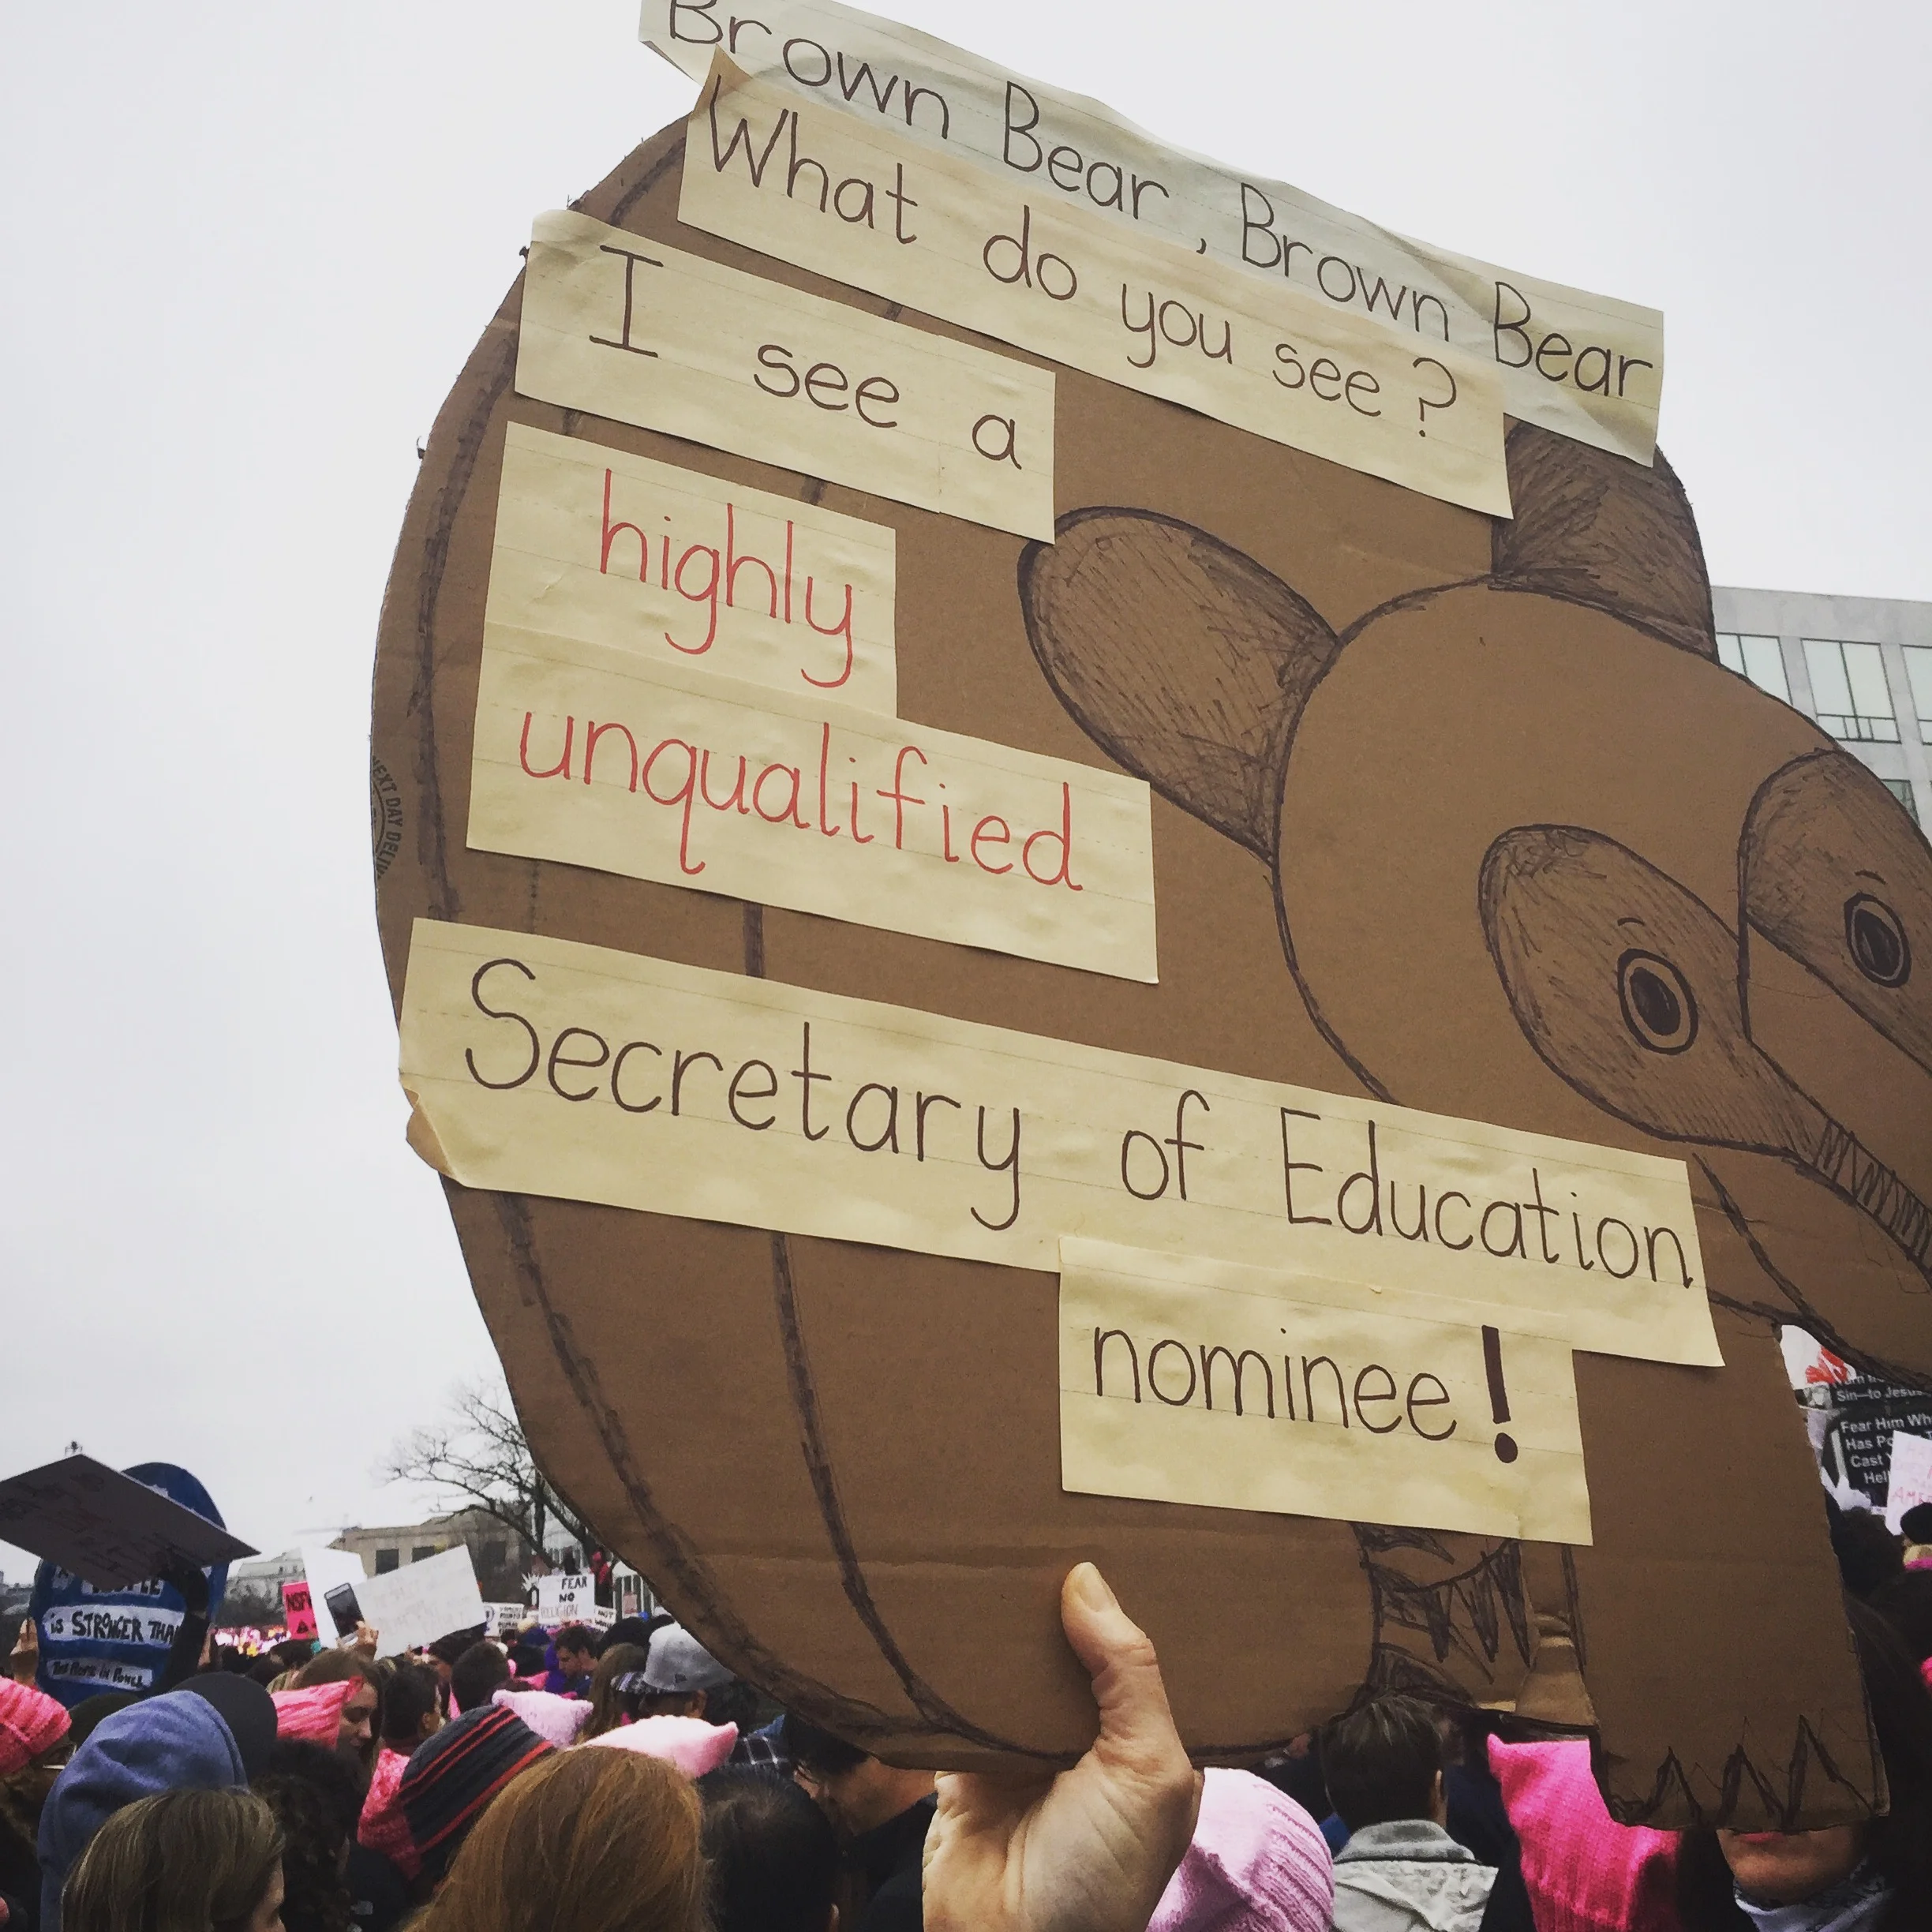 Brown Bear, Brown Bear
What do you see?
I see a
highly
unqualified
Secretary of Education
nominee!
NEXT DAY
is STRONGER THAN
FEAR
NO
RELIGION
NOT
Sin—to Jesus
Fear Him Wh
Has
Cast